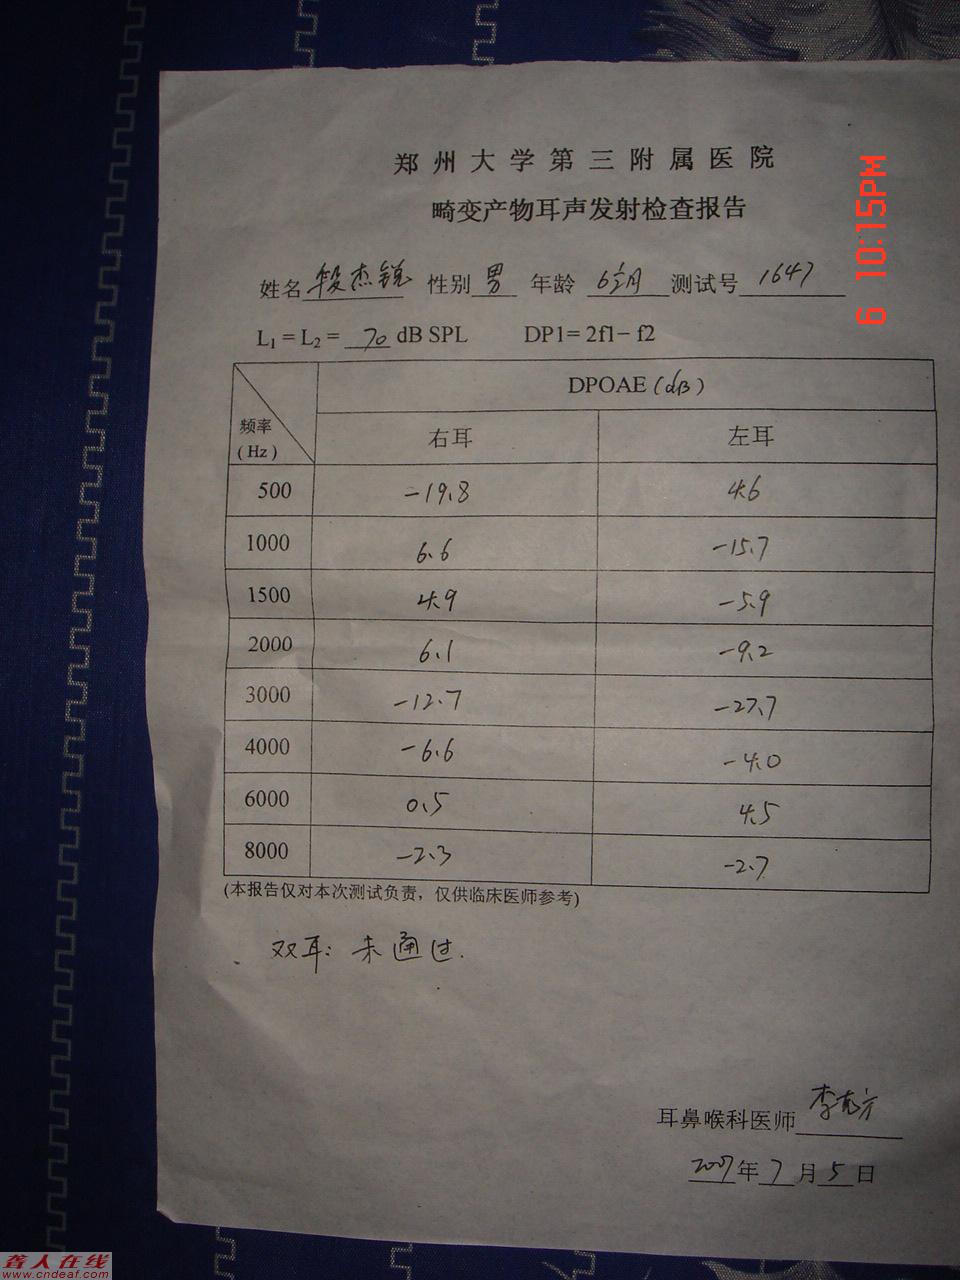 郑州大学第三附属医院
畸变产物耳声发射检查报告
姓名 段杰锐 性别 男 年龄 6½月 测试号 1647
L₁ = L₂ = 70 dB SPL DP1= 2f1− f2
频率 (Hz) DPOAE (dB)
右耳 左耳
500 -19.8 4.6
1000 6.6 -15.7
1500 4.9 -5.9
2000 6.1 -9.2
3000 -12.7 -27.7
4000 -6.6 -4.0
6000 0.5 4.5
8000 -2.3 -2.7
(本报告仅对本次测试负责，仅供临床医师参考)
双耳: 未通过.
耳鼻喉科医师 李
2007年7月5日
6 10:15PM
聋人在线
www.cndeaf.com